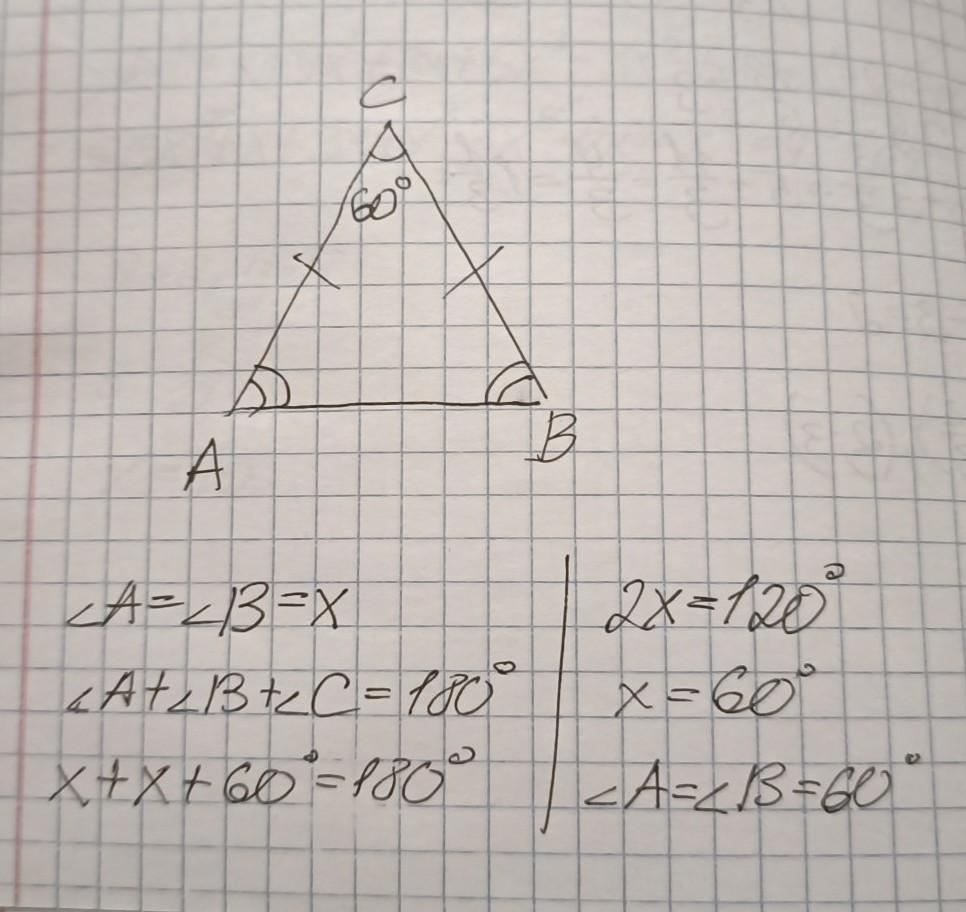 C
60°
A
B
∠A=∠B=x
∠A+∠B+∠C=180°
x+x+60°=180°
2x=120°
x=60°
∠A=∠B=60°